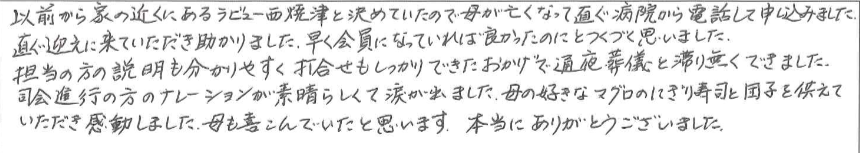 以前から家の近くにあるラビュー西焼津と決めていたので母が亡くなって直ぐ病院から電話して申込みました.
直ぐ迎えに来ていただき助かりました.早く会員になっていれば良かったのにとつくづく思いました.
担当の方の説明も分かりやすく打合せもしっかりできたおかげで通夜葬儀と滞り無くできました.
司会進行の方のナレーションが素晴らしくて涙が出ました.母の好きなマグロのにぎり寿司と団子を供えて
いただき感動しました.母も喜こんでいたと思います.本当にありがとうございました.